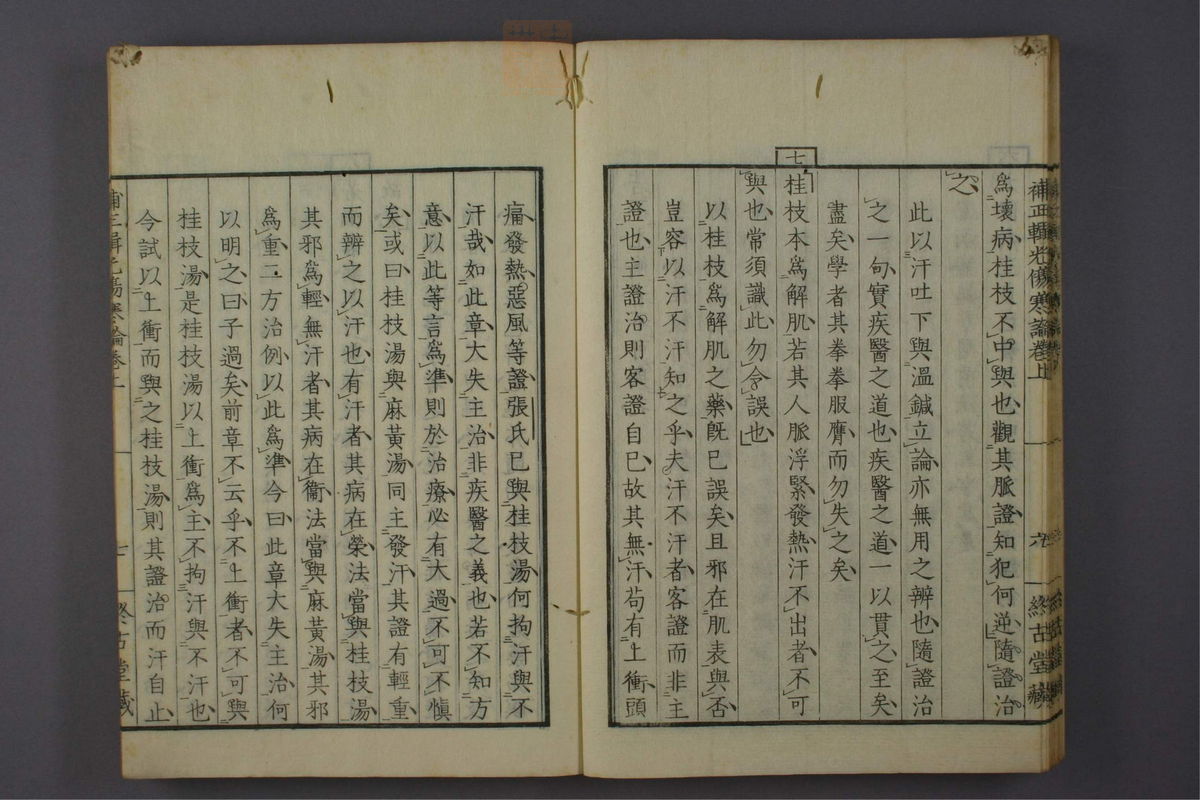 補正輯光傷寒論卷上　六　終古堂藏
爲壞病桂枝不中與也觀其脈證知犯何逆隨證治
之
此以汗吐下與溫鍼立論亦無用之辨也隨證治
之一句實疾醫之道也疾醫之道一以貫之至矣
盡矣學者其拳拳服膺而勿失之矣
七
桂枝本爲解肌若其人脈浮緊發熱汗不出者不可
與也常須識此勿令誤也
以桂枝爲解肌之藥旣已誤矣且邪在肌表與否
豈容以汗不汗知之乎夫汗不汗者客證而非主
證也主證治則客證自已故其無汗苟有上衝頭
痛發熱惡風等證張氏已與桂枝湯何拘汗與不
汗哉如此章大失主治非疾醫之義也若不知方
意以此等言爲準則於治療必有大過不可不愼
矣或曰桂枝湯與麻黃湯同主發汗其證有輕重
而辨之以汗也有汗者其病在榮法當與桂枝湯
其邪爲輕無汗者其病在衞法當與麻黃湯其邪
爲重二方治例以此爲準今曰此章大失主治何
以明之曰子過矣前章不云乎不上衝者不可與
桂枝湯是桂枝湯以上衝爲主不拘汗與不汗也
今試以上衝而與之桂枝湯則其證治而汗自止
補正輯光傷寒論卷上　七　終古堂藏